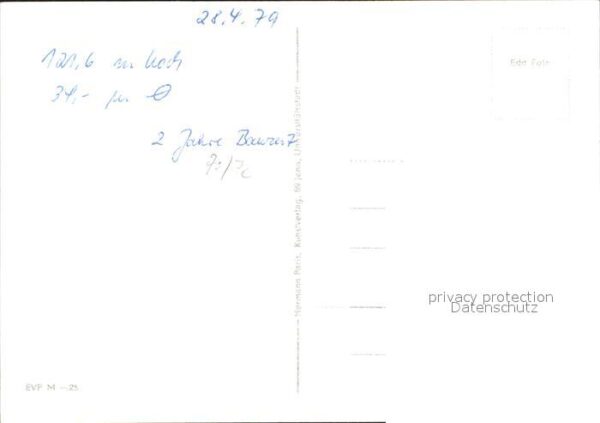 28.4.79
121,6 m hoch
34,- m Ø
2 Jahre Bauzeit
Echt Foto
Hermann Paris, Kunstverlag, 69 Jena, Universitätsstadt
privacy protection
Datenschutz
EVP M -.25